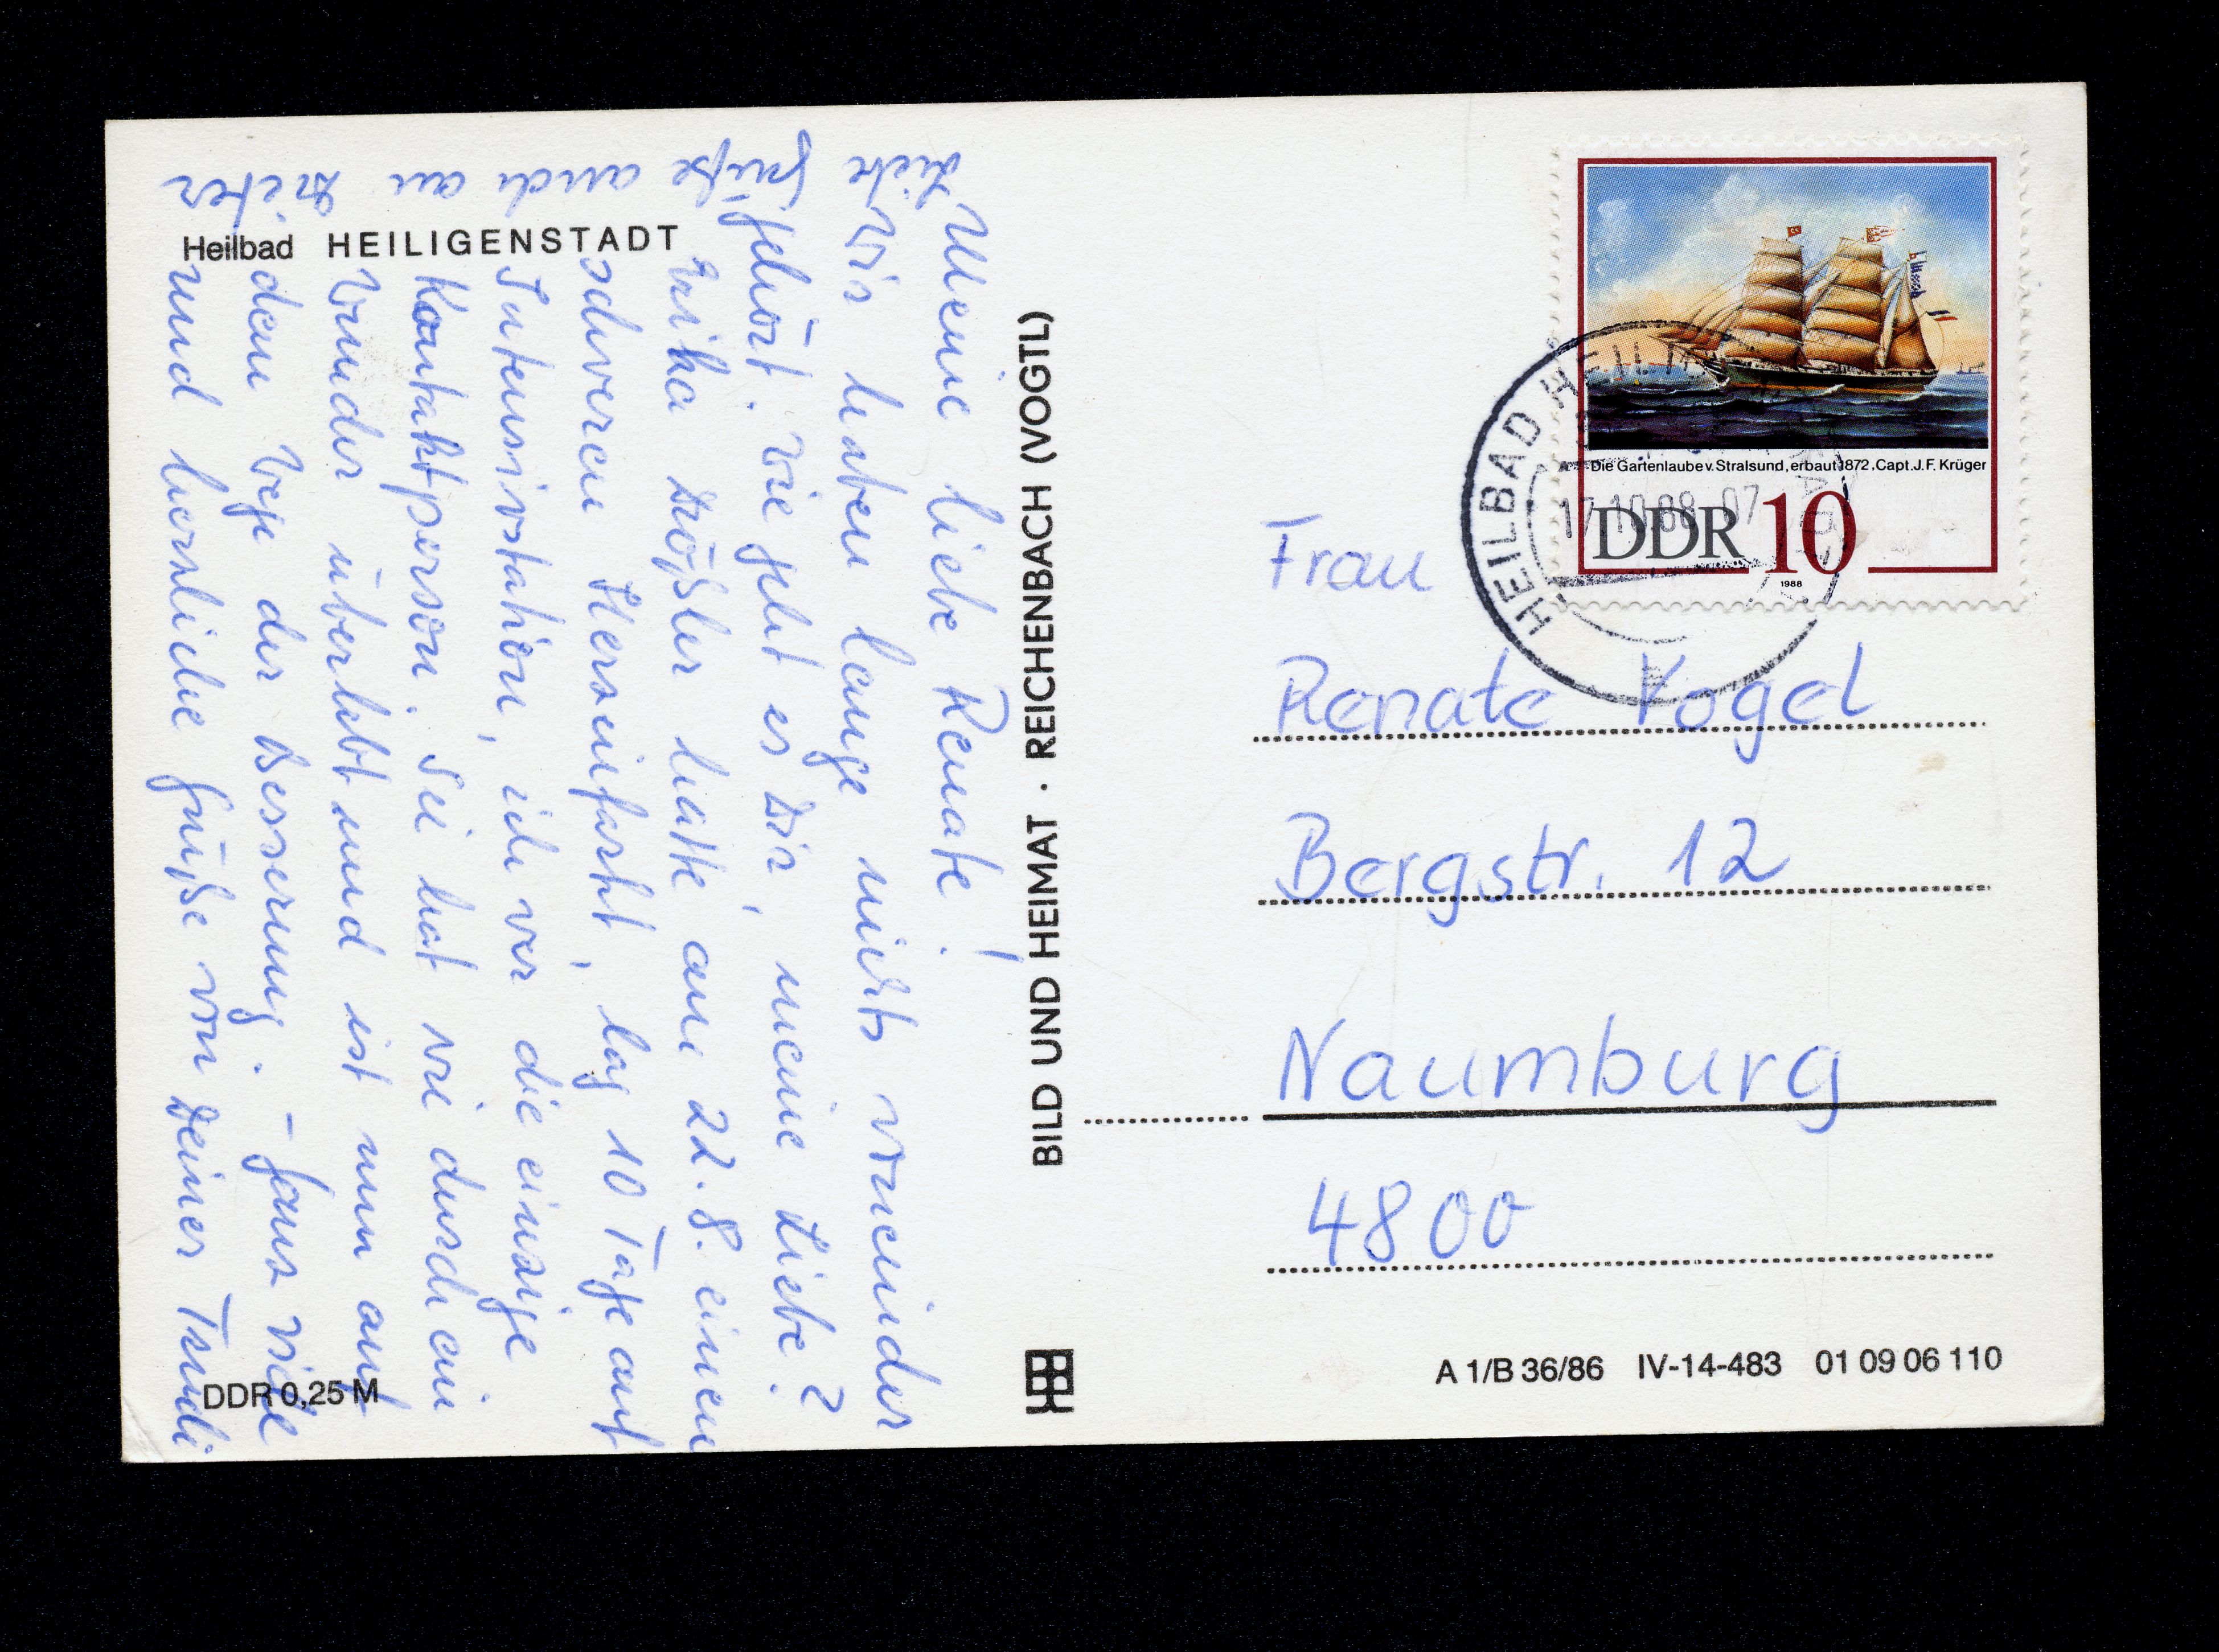 Heilbad HEILIGENSTADT
Meine liebe Renate!
Wir haben lange nichts voneinander
gehört. Wie geht es Dir, meine Liebe?
Erika Dößler hatte am 22.8. einen
schweren Herzinfarkt, lag 10 Tage auf
Intensivstation, ich war die einzige
Kontaktperson. Sie hat wie durch ein
Wunder überlebt und ist nun auf
dem Wege der Besserung. – Ganz viele
und herzliche Grüße von Deiner Trudi
Liebe
Grüße
auch
an
Dieter
DDR 0,25 M
BILD UND HEIMAT · REICHENBACH (VOGTL)
Die Gartenlaube v. Stralsund, erbaut 1872. Capt. J. F. Krüger
DDR 10
1988
HEILBAD HEILIGENSTADT
17.10.88-07
Frau
Renate Vogel
Bergstr. 12
Naumburg
4800
A 1/B 36/86 IV-14-483 01 09 06 110